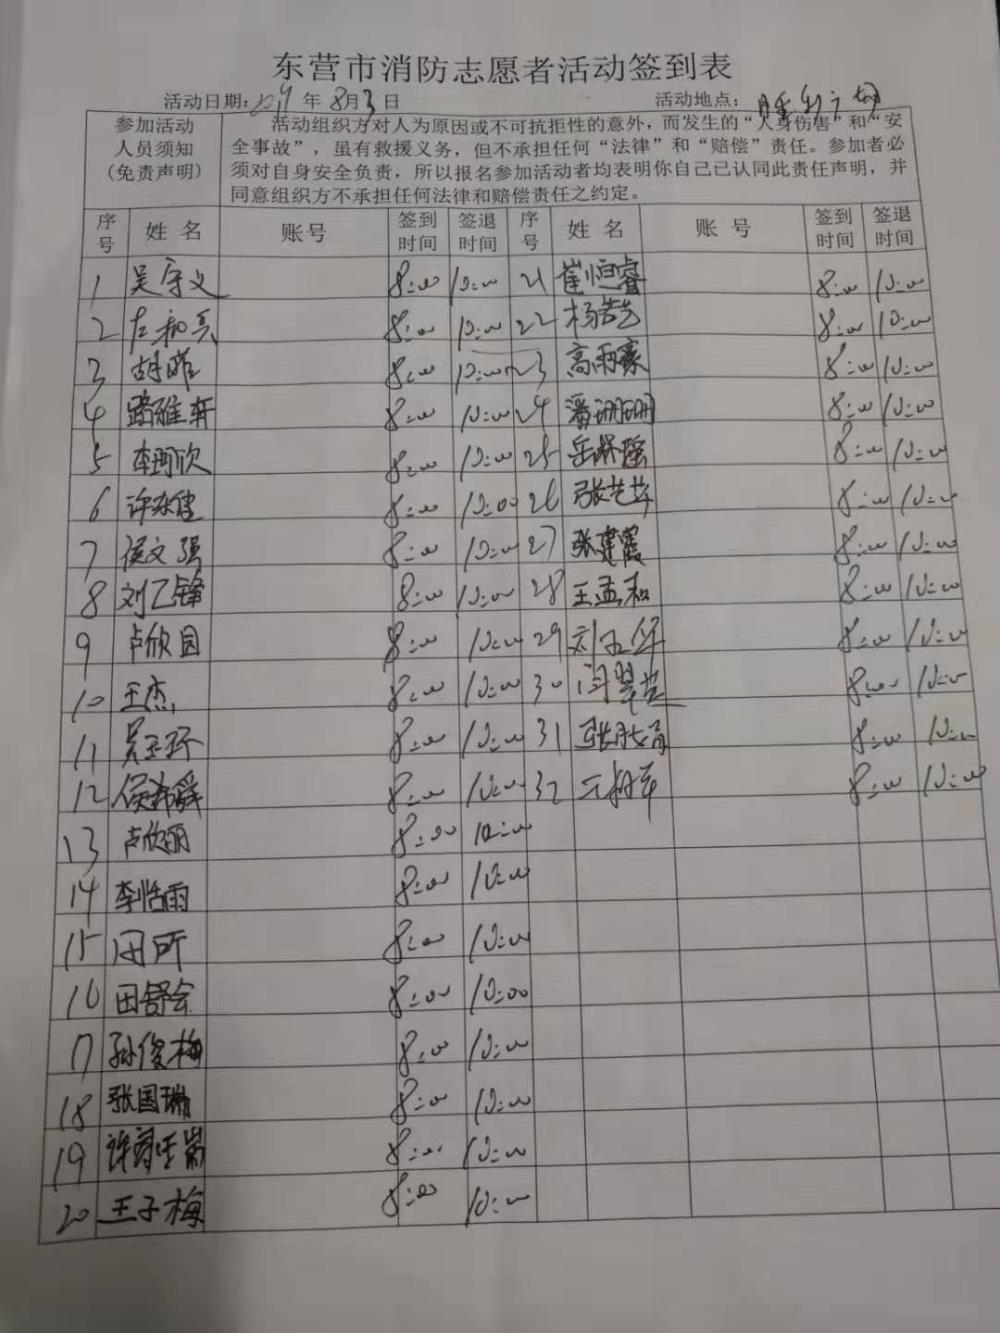 东营市消防志愿者活动签到表
活动日期：2019 年 8月3日 活动地点：胜利广场
参加活动
人员须知
(免责声明)
活动组织方对人为原因或不可抗拒性的意外，而发生的“人身伤害”和“安
全事故”，虽有救援义务，但不承担任何“法律”和“赔偿”责任。参加者必
须对自身安全负责，所以报名参加活动者均表明你自己已认同此责任声明，并
同意组织方不承担任何法律和赔偿责任之约定。
序号 姓名 账号 签到时间 签退时间 序号 姓名 账号 签到时间 签退时间
1 吴守义 8:00 10:00 21 崔恒睿 8:00 10:00
2 左和兵 8:00 10:00 22 杨浩艺 8:00 10:00
3 胡 8:00 10:00 23 高雨豪 8:00 10:00
4 路雅轩 8:00 10:00 24 潘珊珊 8:00 10:00
5 李珂欣 8:00 10:00 25 岳琳瑶 8:00 10:00
6 许 8:00 10:00 26 张艺苹 8:00 10:00
7 侯文强 8:00 10:00 27 张建霞 8:00 10:00
8 刘乙锋 8:00 10:00 28 王孟和 8:00 10:00
9 卢欣园 8:00 10:00 29 刘玉华 8:00 10:00
10 王杰 8:00 10:00 30 闫翠芝 8:00 10:00
11 吴玉环 8:00 10:00 31 张 8:00 10:00
12 侯希舜 8:00 10:00 32 8:00 10:00
13 卢欣丽 8:00 10:00
14 李怡雨 8:00 10:00
15 田所 8:00 10:00
16 田舒会 8:00 10:00
17 孙俊梅 8:00 10:00
18 张国瑞 8:00 10:00
19 许 8:00 10:00
20 王子梅 8:00 10:00